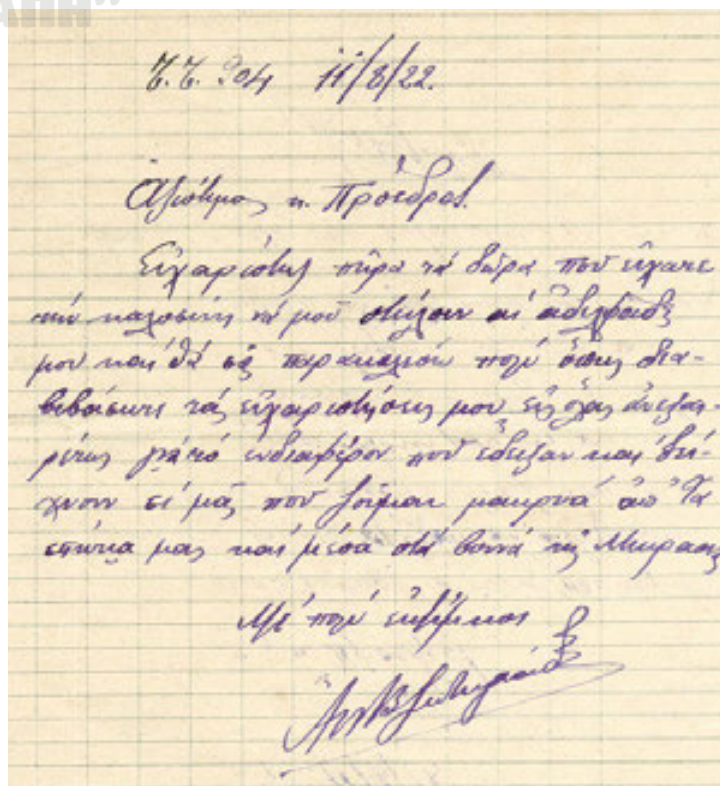 Τ.Τ. 904 11/8/22.
Ἀξιότιμος κ. Πρόεδρος.
Εὐχαρίστως πῆρα τά δῶρα πού εἴχατε
τήν καλοσύνη νά μοῦ στείλουν αἱ ἀδελφάδες
μου καί θά σᾶς παρακαλέσω πολύ ὅπως δια-
βιβάσετε τάς εὐχαριστήσεις μου εἰς ὅλας ἀνεξαι-
ρέτως γιά τό ἐνδιαφέρον πού ἔδειξαν καί δεί-
χνουν σέ μᾶς πού ζοῦμαι μακρυά ἀπό τά
σπίτια μας καί μέσα στά βουνά τῆς Μικρασίας
Μέ πολύ ἐκτίμησι